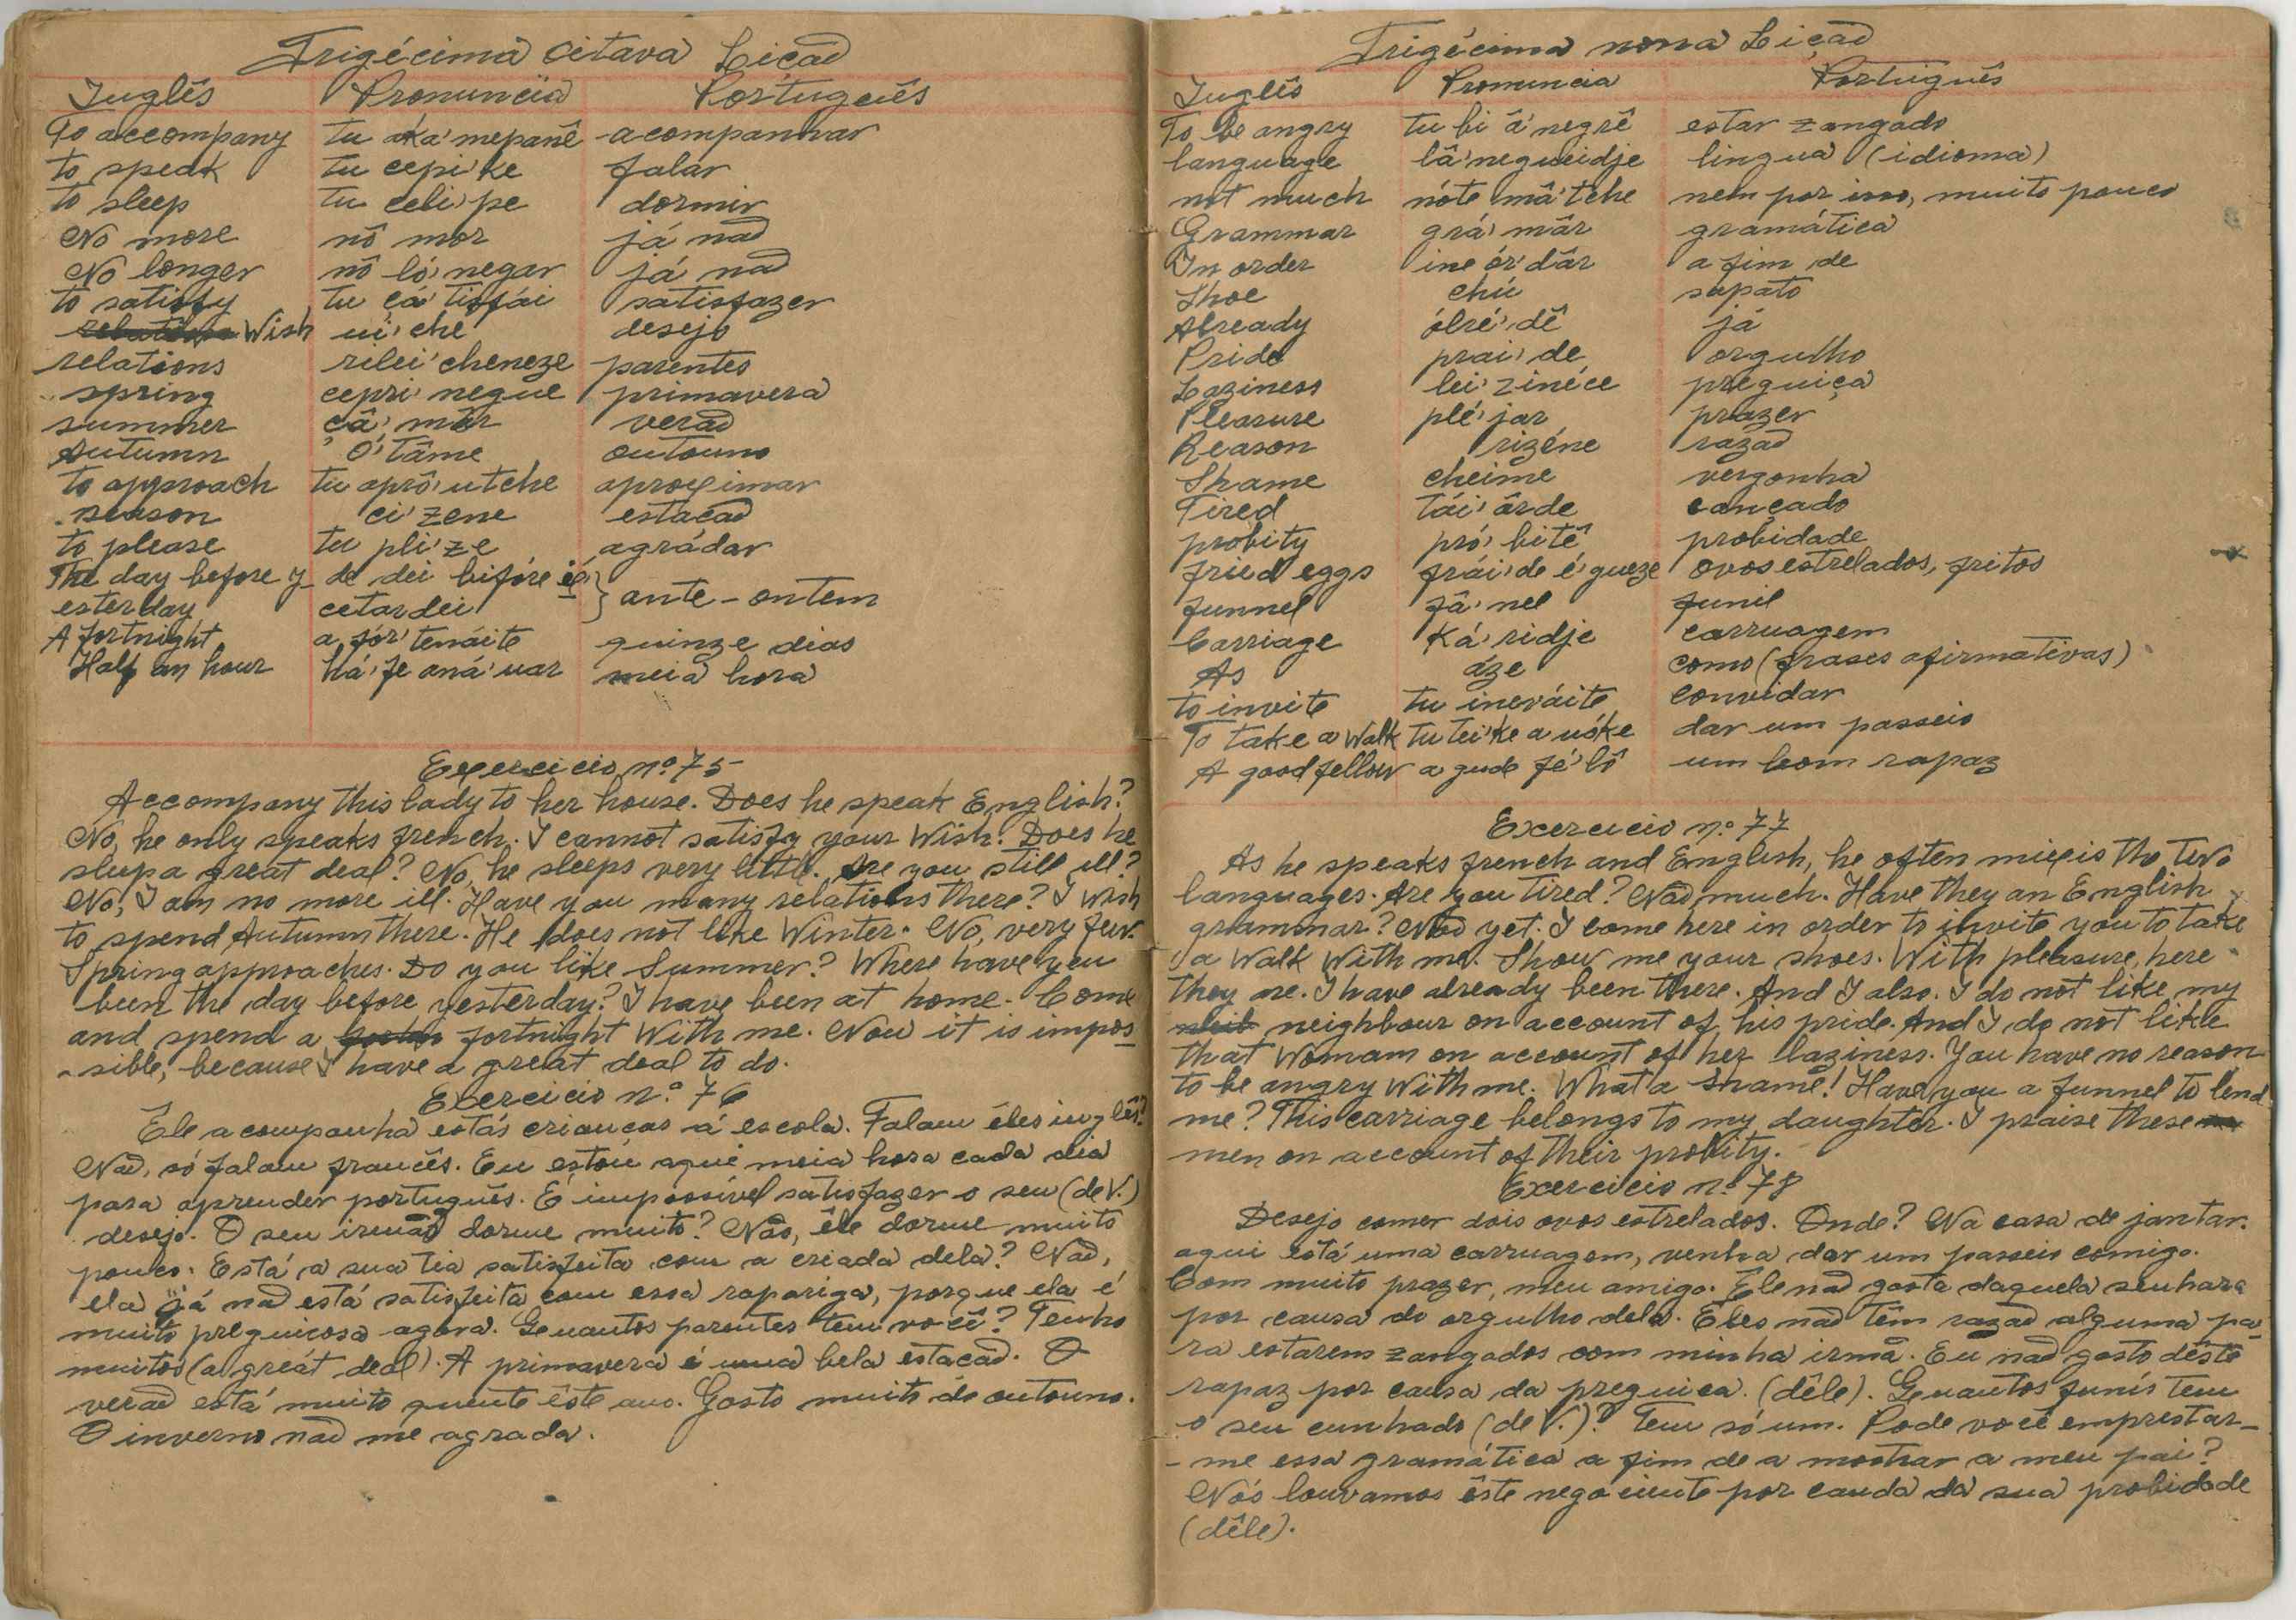 Trigécima oitava Lição
Inglês Pronuncia Português
To accompany tu aká'mepanê acompanhar
to speak tu cepi'ke falar
to sleep tu celi'pe dormir
No more nô mor já não
No longer nô ló'negar já não
to satisfy tu çá'tisfái satisfazer
Wish ui'che desejo
relations rilei'cheneze parentes
spring cepri'negue primavera
summer çâ'mâr verão
Autumn ó'tâme outouno
to approach tu aprô'utche aproximar
season ci'zene estação
to please tu pli'ze agrádar
The day before y- de dei bifóre ié } ante-ontem
esterday cetardei
A fortnight a fór'tenáite quinze dias
Half an hour há'fe aná'uar meia hora
Exercicio n.º 75
Accompany this lady to her house. Does he speak English?
No, he only speaks french. I cannot satisfy your Wish. Does he
sleep a great deal? No, he sleeps very little. Are you still ill?
No, I am no more ill. Have you many relations there? I wish
to spend Autumn there. He does not like Winter. No, very few.
Spring approaches. Do you like Summer? Where have you
been the day before yesterday? I have been at home. Come
and spend a fortnight With me. Now it is impos-
sible, because I have a great deal to do.
Exercicio n.º 76
Ele acompanha estás crianças á escola. Falam êles inglês?
Não, só falam francês. Eu estou aqui meia hora cada dia
para aprender português. É impossível satisfazer o seu (de V.)
desejo. O seu irmão dorme muito? Não, êle dorme muito
pouco. Está a sua tia satisfeita com a criada dela? Não,
ela já não está satisfeita com essa rapariga, porque ela é
muito preguiçosa agora. Quantos parentes tem você? Tenho
muitos (a great deal). A primavera é uma bela estação. O
verão está muito quente êste ano. Gosto muito do outouno.
O inverno não me agrada.
Trigécima nona Lição
Inglês Pronuncia Português
To be angry tu bi â'negrê estar zangado
language lâ'negueidje lingua (idioma)
not much nóte mâ'tche nem por isso, muito pouco
Grammar grá'mâr gramática
In order ine ór'dâr a fim de
Shoe chú sapato
Already ólré'dê já
Pride prai'de orgulho
Laziness lei'zinéce preguiça
Pleasure plé'jar prazer
Reason rizéne razão
Shame cheime vergonha
Tired tái'ârde cançado
probity pró'bitê probidade
fried eggs frái'de é'gueze ovos estrelados, fritos
funnel fâ'nel funil
Carriage Ká'ridje carruagem
As áze como (frases afirmativas)
to invite tu inevaite convidar
To take a Walk tu tei'ke a uóke dar um passeio
A good fellow a gude fé'lô um bom rapaz
Excercicio n.º 77
As he speaks french and English, he often mixis the two
languages. Are you tired? Não much. Have they an English
grammar? Não yet. I come here in order to invite you to take
a Walk With me. Show me your shoes. With pleasure, here
they are. I have already been there. And I also. I do not like my
neighbour on account of his pride. And I do not like
that Womam on account of her laziness. You have no reason
to be angry With me. What a shame! Have you a funnel to lend
me? This carriage belongs to my daughter. I praise these
men on account of their probity.
Exercicio n.º 78
Desejo comer dois ovos estrelados. Onde? Na casa de jantar.
aqui está uma carruagem, venha dar um passeio comigo.
Com muito prazer, meu amigo. Ele não gosta daquela senhora
por causa do orgulho dela. Eles não têm razão alguma pa-
ra estarem zangados com minha irmã. Eu não gosto dêste
rapaz por causa da preguiça. (dêle). Quantos funís tem
o seu cunhado (de V.)? Tem só um. Pode você emprestar-
-me essa gramática a fim de a mostrar a meu pai?
Nós louvamos êste negociente por cauda da sua probidade
(dêle).